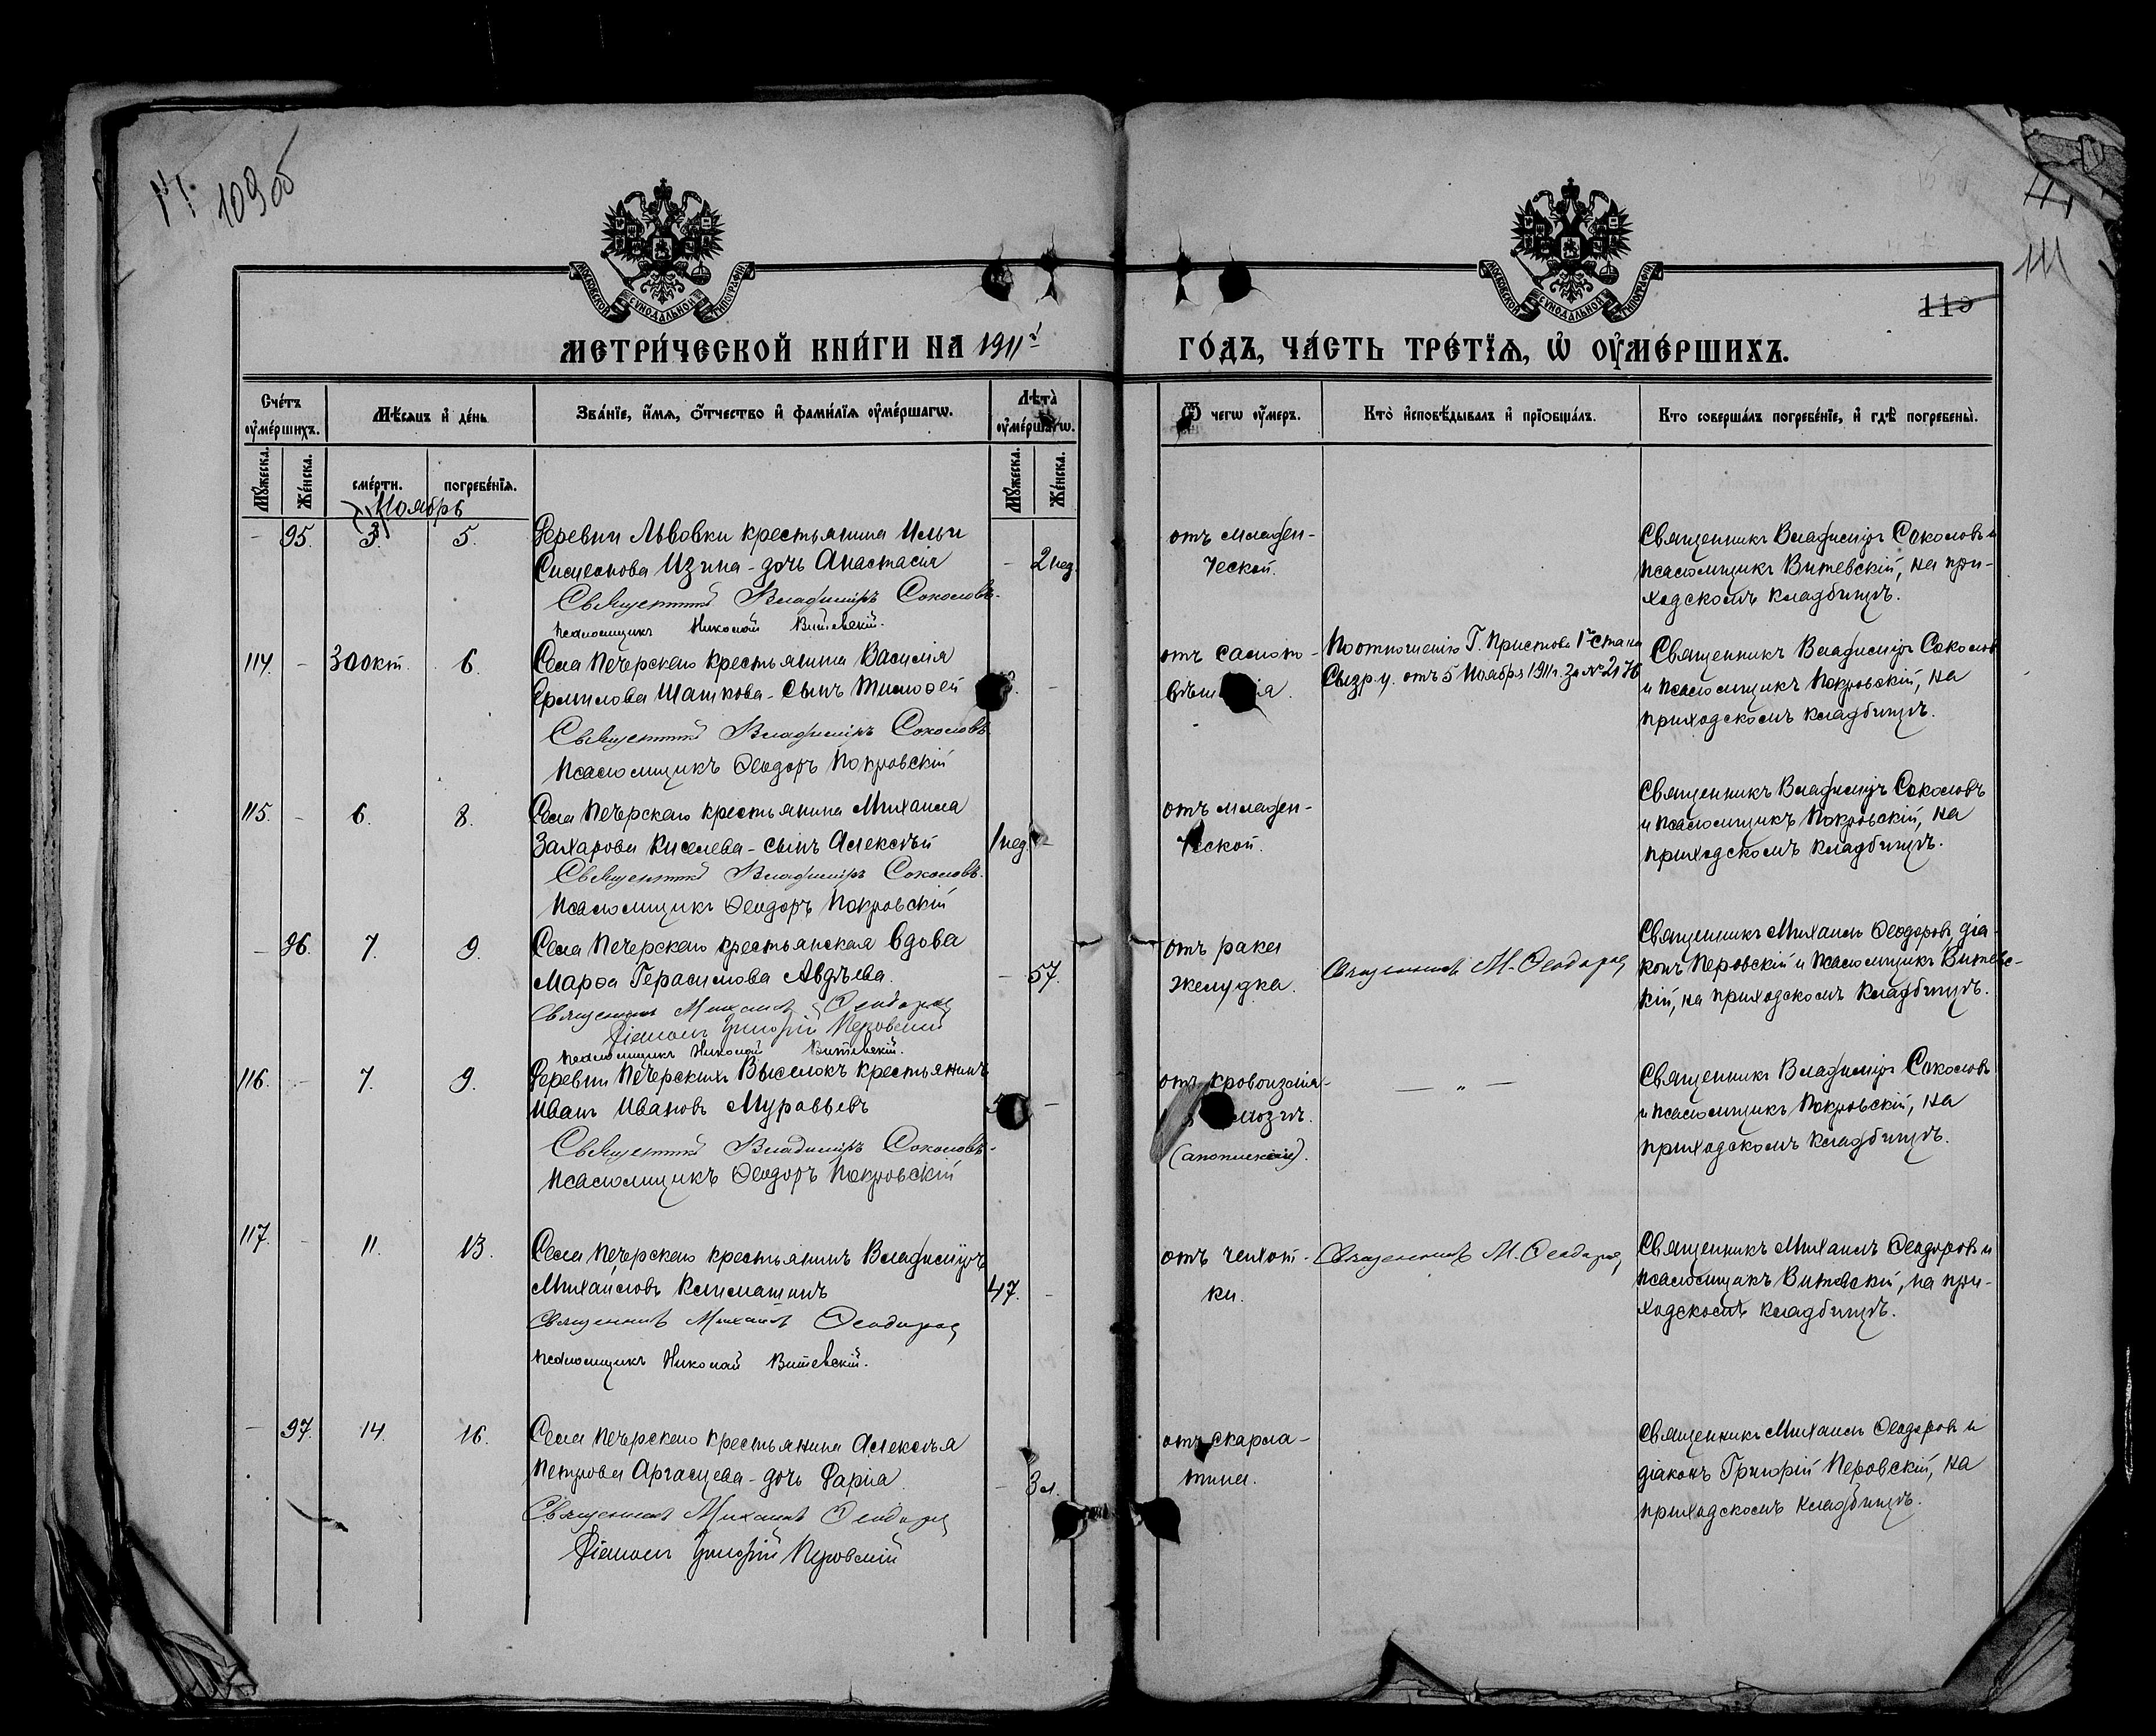 109об
111
110
МОСКОВСКОЙ СѴНОДАЛЬНОЙ ТИПОГРАФІИ
МОСКОВСКОЙ СѴНОДАЛЬНОЙ ТИПОГРАФІИ
МЕТРИ́ЧЕСКОЙ КНИ́ГИ НА 1911й
ГО́ДЪ, ЧА́СТЬ ТРЕ́ТІѦ, Ѡ҆ ОУ҆МЕ́РШИХЪ.
Сче́тъ оу҆ме́ршихъ.
Мѣ́сяцъ и҆ де́нь
Зва́нїе, и҆́мѧ, ѻ҆́тчество и҆ фами́лїѧ оу҆ме́ршагѡ.
Лѣта̀ оу҆ме́ршагѡ.
Ѿ чегѡ̀ оу҆́меръ.
Кто̀ и҆сповѣ́дывалъ и҆ прїѡбща́лъ.
Кто̀ соверша́лъ погребе́нїе, и҆ гдѣ̀ погребены̀.
Мꙋ́жеска.
Же́нска.
сме́рти.
погребе́нїѧ.
Мꙋ́жеска.
Же́нска.
Ноябрь
- 95. 3. 5. Деревни Львовки крестьянина Ильи
Симеонова Изина - дочь Анастасія - 2 нед.
Священникъ Владиміръ Соколовъ.
Псаломщикъ Николай Витевскій.
отъ младен-
ческой.
Священникъ Владиміръ Соколовъ и
псаломщикъ Витевскій, на при-
ходскомъ кладбищѣ.
114. - 30 окт. 6. Села Печерскаго крестьянина Василія
Ермилова Шашкова - сынъ Тимоѳей -
Священникъ Владиміръ Соколовъ.
Псаломщикъ Ѳеодоръ Покровскій
отъ самопо-
По отношенію Г. Пристава 1го Стана
Сызр. у. отъ 5 Ноября 1911 г. за № 2176
Священникъ Владиміръ Соколовъ
и псаломщикъ Покровскій, на
приходскомъ кладбищѣ.
115. - 6. 8. Села Печерскаго крестьянина Михаила
Захарова Киселева - сынъ Алексѣй 1 нед. -
Священникъ Владиміръ Соколовъ.
Псаломщикъ Ѳеодоръ Покровскій
отъ младен-
ческой.
Священникъ Владиміръ Соколовъ
и псаломщикъ Покровскій, на
приходскомъ кладбищѣ.
- 96. 7. 9. Села Печерскаго крестьянская вдова
Марѳа Герасимова Авдѣева. - 57.
Священникъ Михаилъ Ѳеодоровъ
Діаконъ Григорій Перовскій
Псаломщикъ Николай Витевскій.
отъ рака
желудка.
Священникъ М. Ѳеодоровъ
Священникъ Михаилъ Ѳеодоровъ, діа-
конъ Перовскій и псаломщикъ Витевс-
кій, на приходскомъ кладбищѣ.
116. - 7. 9. Деревни Печерскихъ Выселокъ крестьянинъ
Иванъ Ивановъ Муравьевъ -
Священникъ Владиміръ Соколовъ.
Псаломщикъ Ѳеодоръ Покровскій
отъ кровоизлія-
мозгъ.
— „ —
Священникъ Владиміръ Соколовъ
и псаломщикъ Покровскій, на
приходскомъ кладбищѣ.
117. - 11. 13. Села Печерскаго крестьянинъ Владиміръ
Михайловъ Климашинъ 47. -
Священникъ Михаилъ Ѳеодоровъ
Псаломщикъ Николай Витевскій.
отъ чахот-
ки.
Священникъ М. Ѳеодоровъ
Священникъ Михаилъ Ѳеодоровъ и
псаломщикъ Витевскій, на при-
ходскомъ кладбищѣ.
- 97. 14. 16. Села Печерскаго крестьянина Алексѣя
Петрова Аргасцева - дочь Дарія - 3 л.
Священникъ Михаилъ Ѳеодоровъ
Діаконъ Григорій Перовскій
отъ скарла-
тины.
Священникъ Михаилъ Ѳеодоровъ и
діаконъ Григорій Перовскій, на
приходскомъ кладбищѣ.